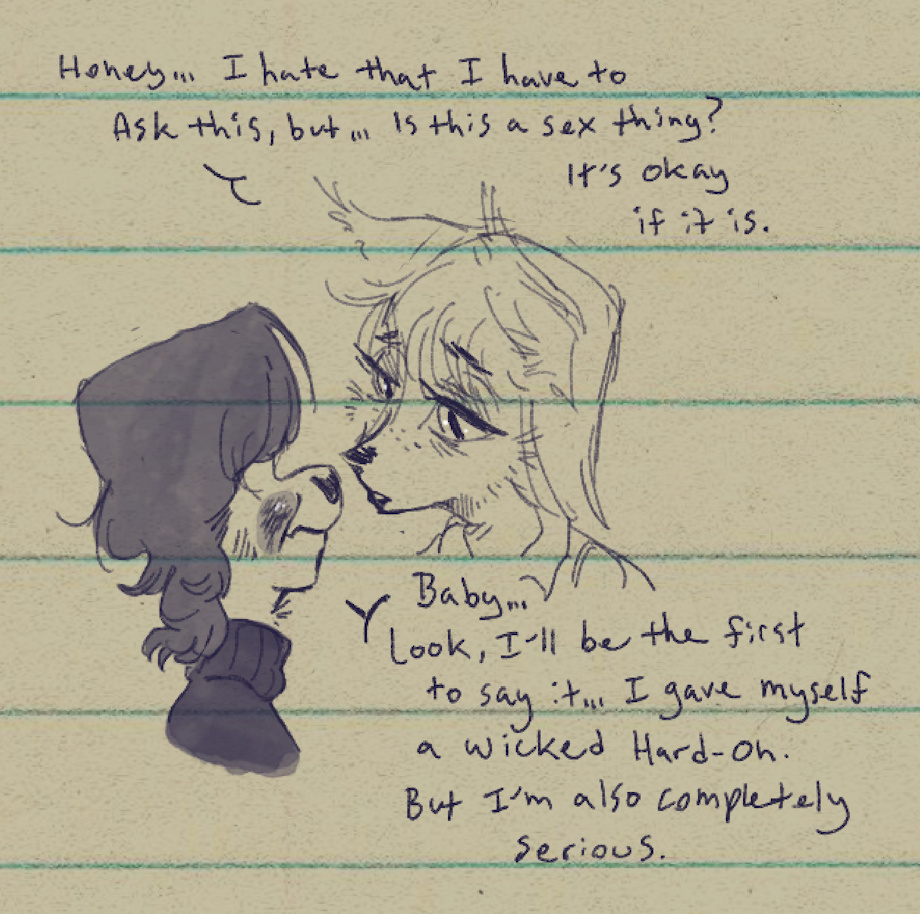 Honey... I hate that I have to
Ask this, but... Is this a sex thing?
It's okay
if it is.
Baby...
Look, I'll be the first
to say it... I gave myself
a wicked Hard-on.
But I'm also completely
serious.